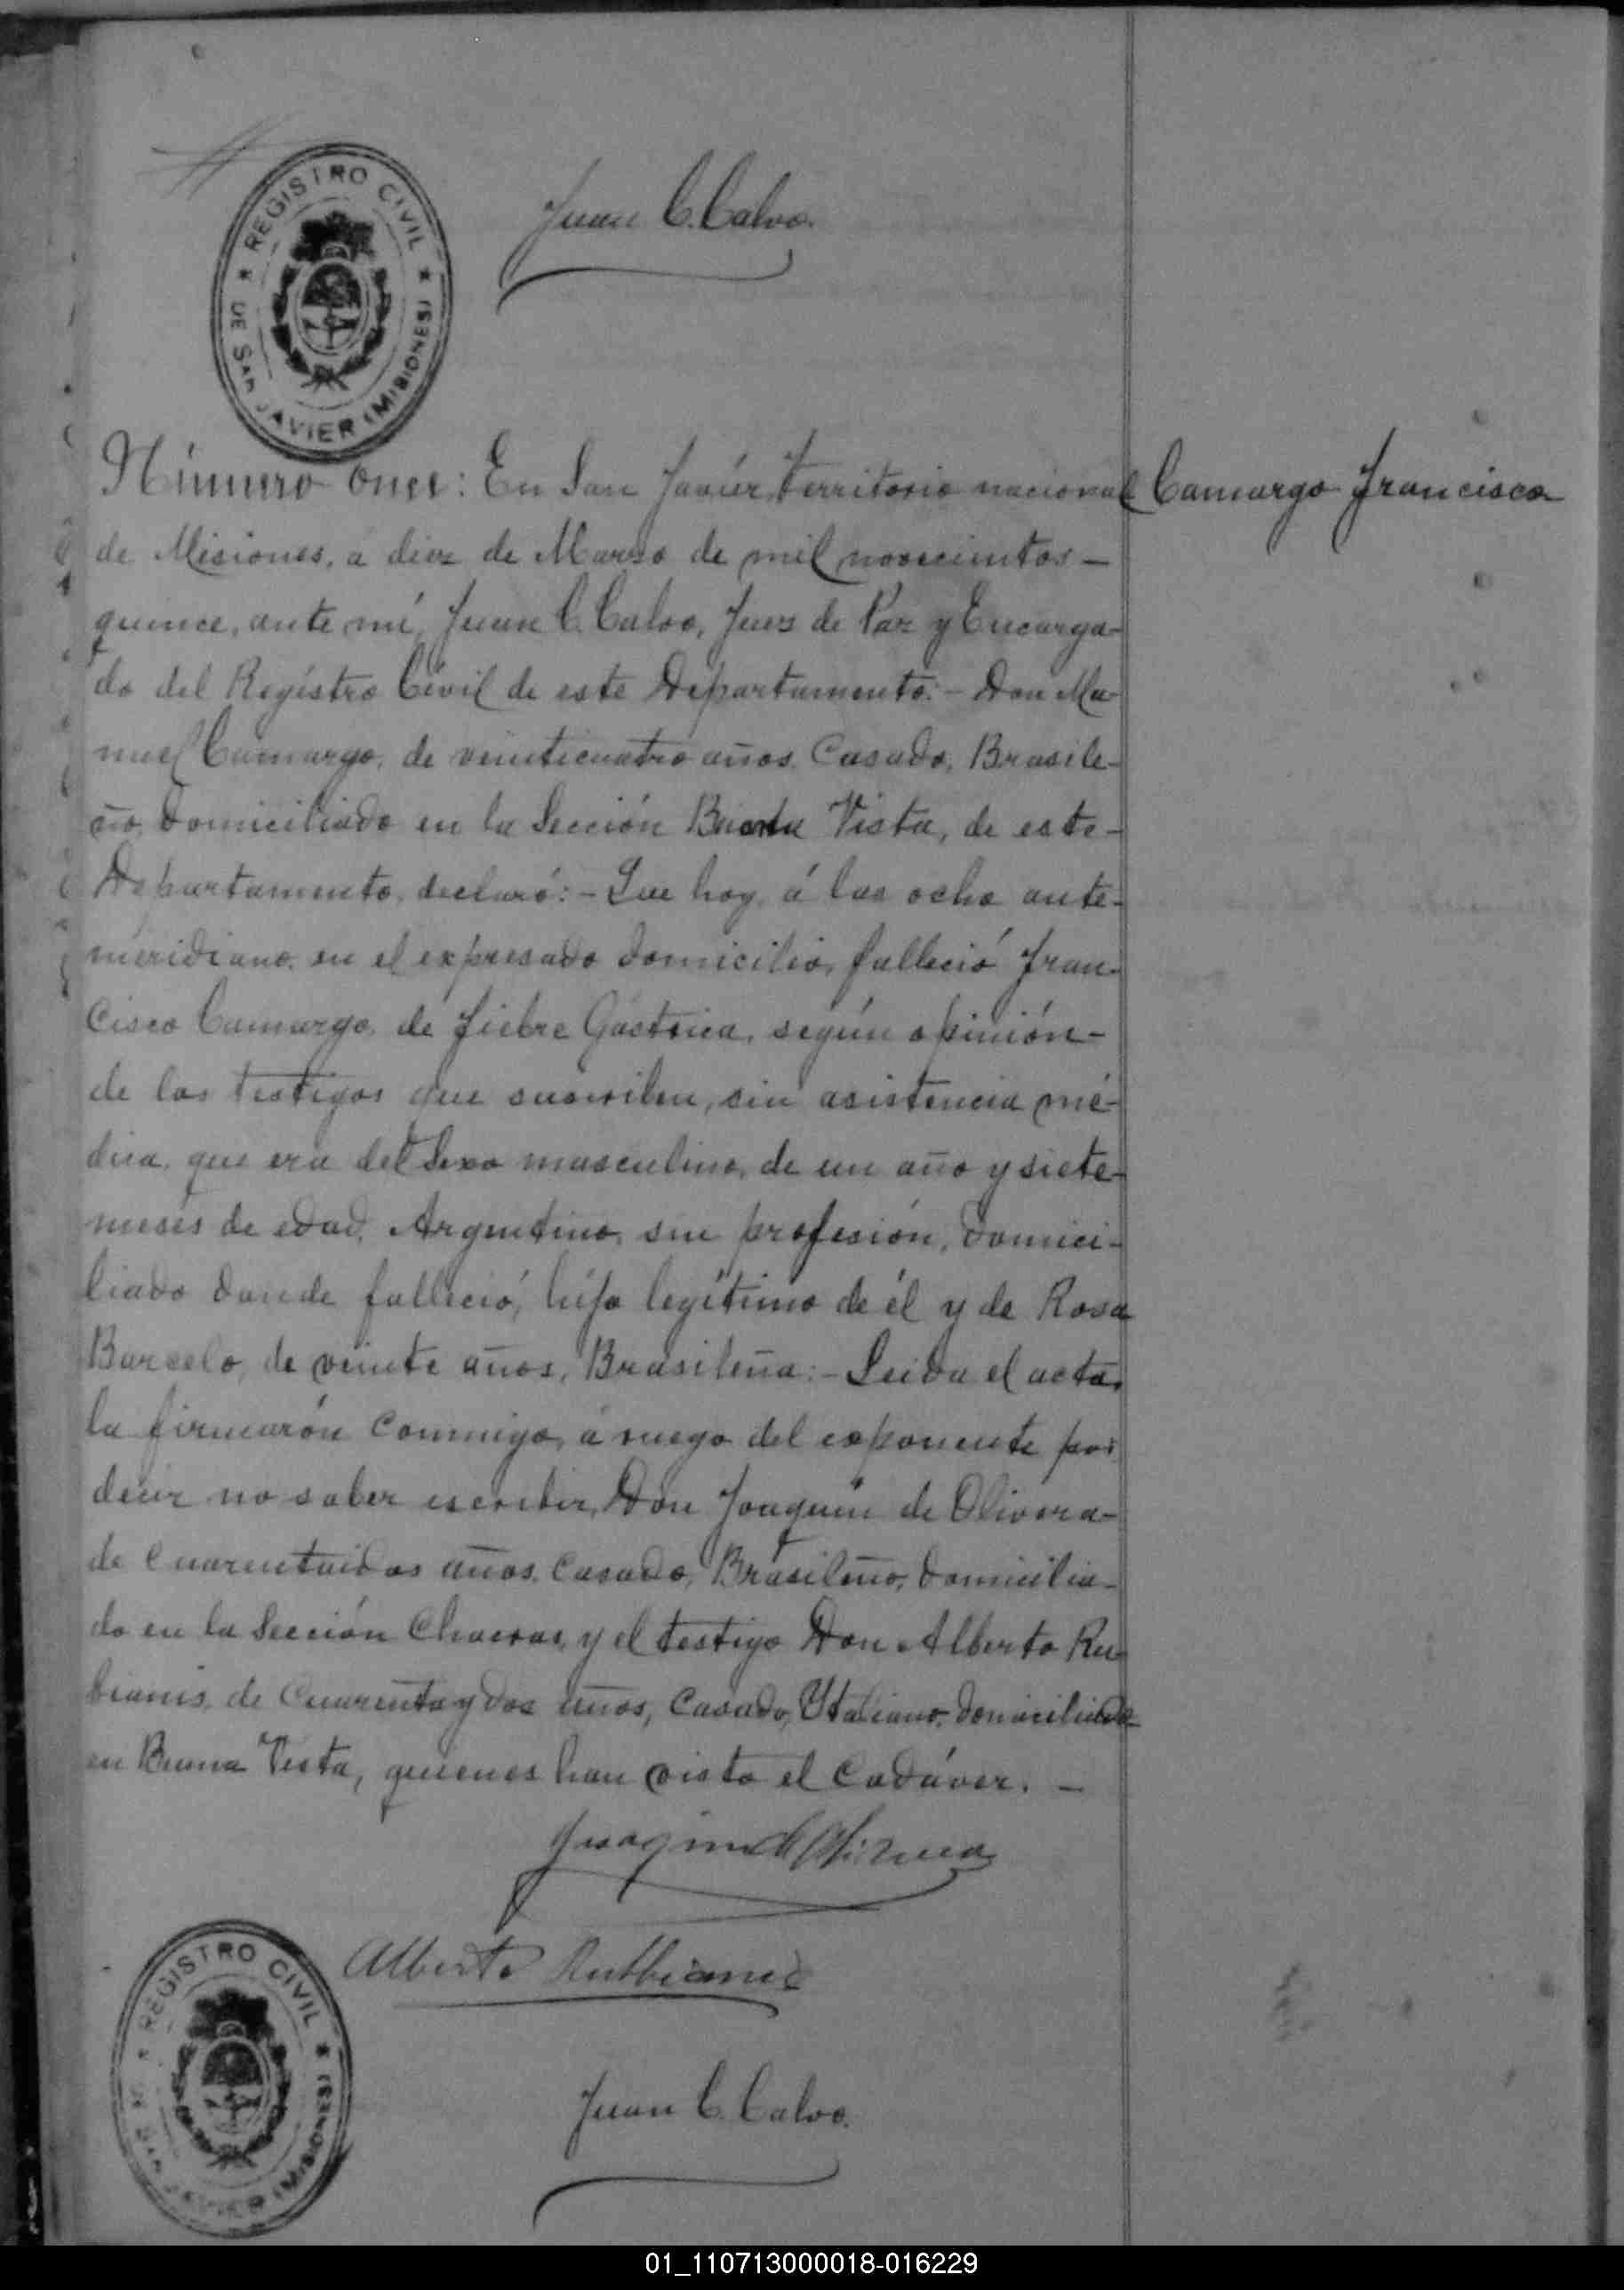 REGISTRO CIVIL
DE SAN JAVIER (MISIONES)
Juan C. Calvo.
Número once: En San Javiér, Territorio nacional
Camargo Francisco
de Misiones, á diez de Marzo de mil novecientos –
quince, ante mí, Juan C. Calvo, Juez de Paz y Encarga-
do del Registro Civil de este Departamento: – Don Ma-
nuel Camargo, de veinticuatro años, Casado, Brasile-
ño, domiciliado en la Sección Buena Vista, de este –
Departamento, declaró: – Que hoy, á las ocho ante-
meridiano, en el expresado domicilio, falleció Fran-
cisco Camargo, de fiebre Gástrica, según opinión –
de los testigos que suscriben, sin asistencia mé-
dica, que era del Sexo masculino, de un año y siete
meses de edad, Argentino, sin profesión, domici-
liado donde falleció, hijo legítimo de él y de Rosa
Barcelo, de veinte años, Brasileña: – Leida el acta,
la firmarón conmigo, á ruego del exponente por
decir no saber escribir, Don Joaquin de Olivera –
de Cuarentaidos años, Casado, Brasileño, domicilia-
do en la Sección Chacras, y el testigo Don Alberto Ru-
bianis, de Cuarenta y dos años, Casado, Ytaliano, domiciliado
en Buena Vista, quienes han visto el Cadáver. –
Alberto
Juan C. Calvo.
REGISTRO CIVIL
DE SAN JAVIER (MISIONES)
01_110713000018-016229